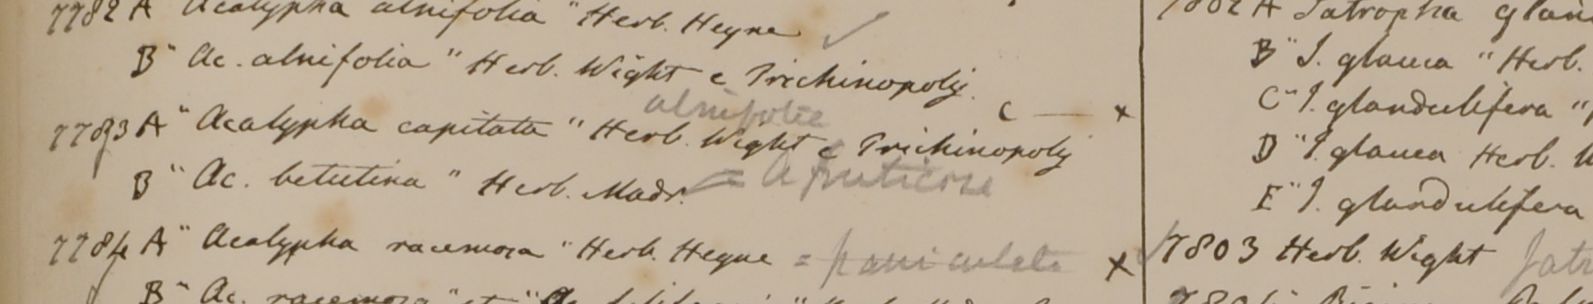 7782 A "Acalypha alnifolia" Herb. Heyne ✓
B "Ac. alnifolia" Herb. Wight e Trichinopoly.
alnifolia
7783 A "Acalypha capitata" Herb. Wight e Trichinopoly
B "Ac. betulina" Herb. Madr. = A fruticosa
7784 A "Acalypha racemosa" Herb. Heyne = paniculata ×
B "Ac. racemosa" et "Ac.
7802 A Jatropha glan
B "J. glauca" Herb.
C "J. glandulifera"
D "J. glauca Herb.
E "J. glandulifera
7803 Herb. Wight Jatr